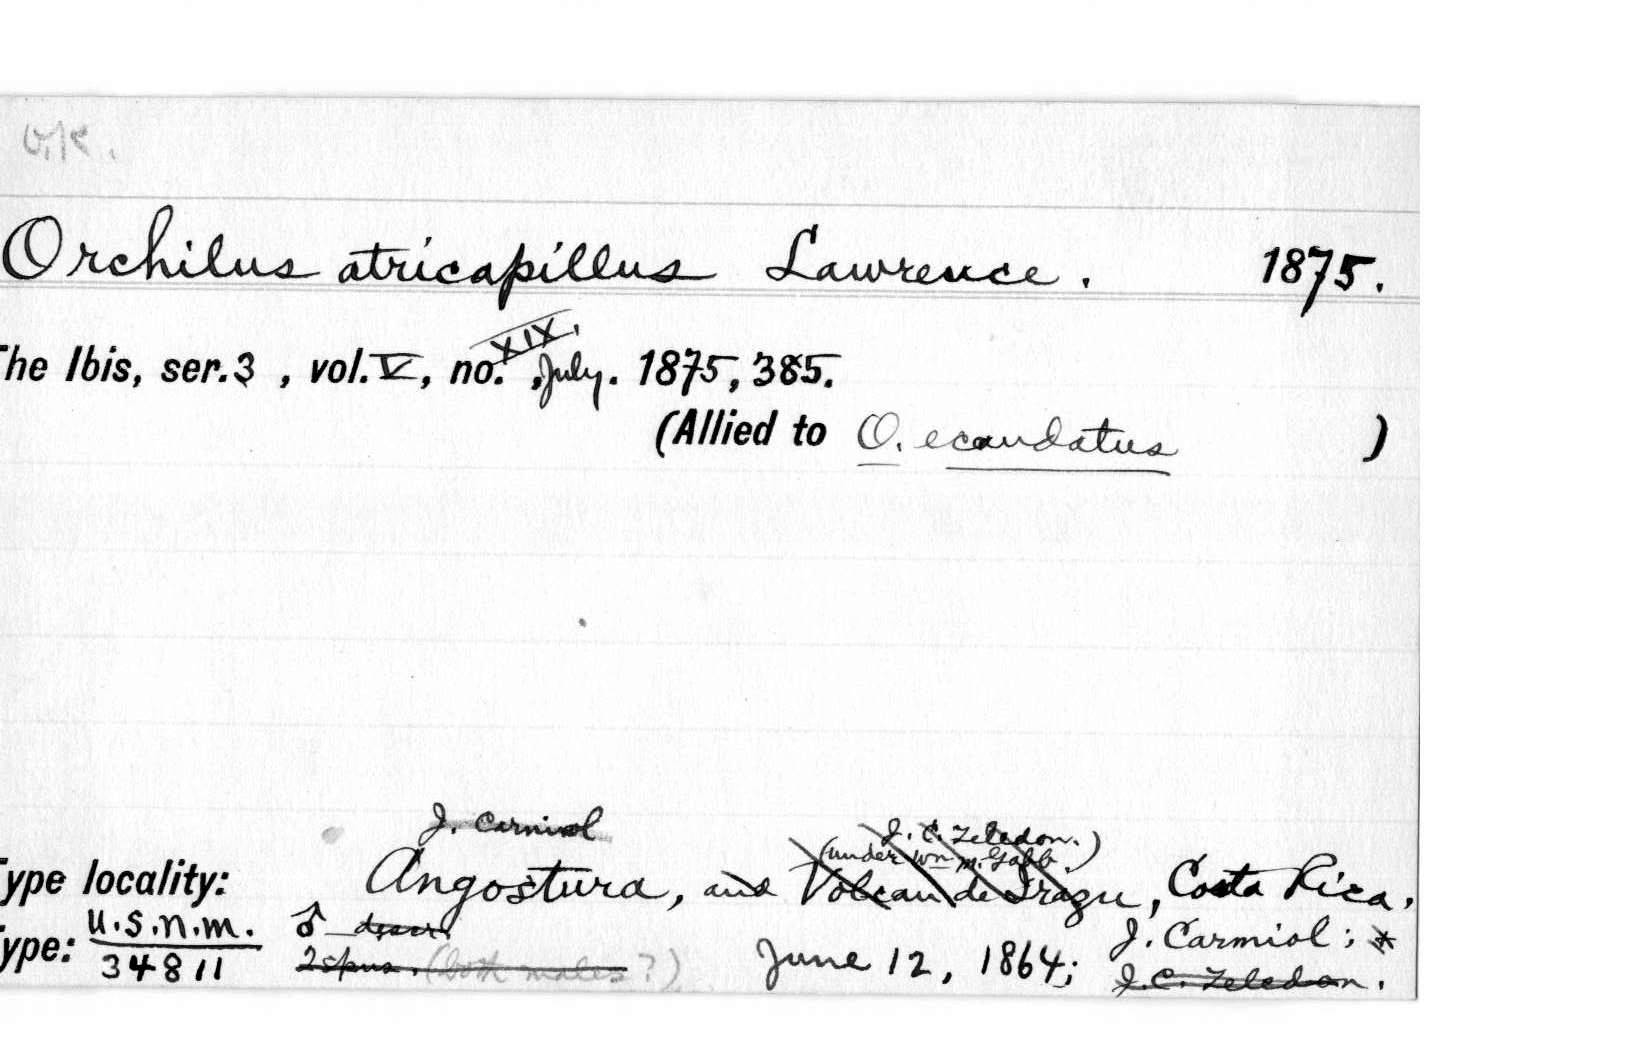 O.K.
Orchilus atricapillus Lawrence. 1875.
The Ibis, ser. 3, vol. V, no. XIX, July. 1875, 385.
(Allied to O. ecaudatus )
J. Carmiol J. C. Zeledon.)
(under Wm M. Gabb
Type locality: Angostura, and Volcan de Irazu, Costa Rica.
Type: U.S.N.M. 34811 ♂ descr. June 12, 1864; J. Carmiol; *
2 spms. (both males?) J. C. Zeledon.